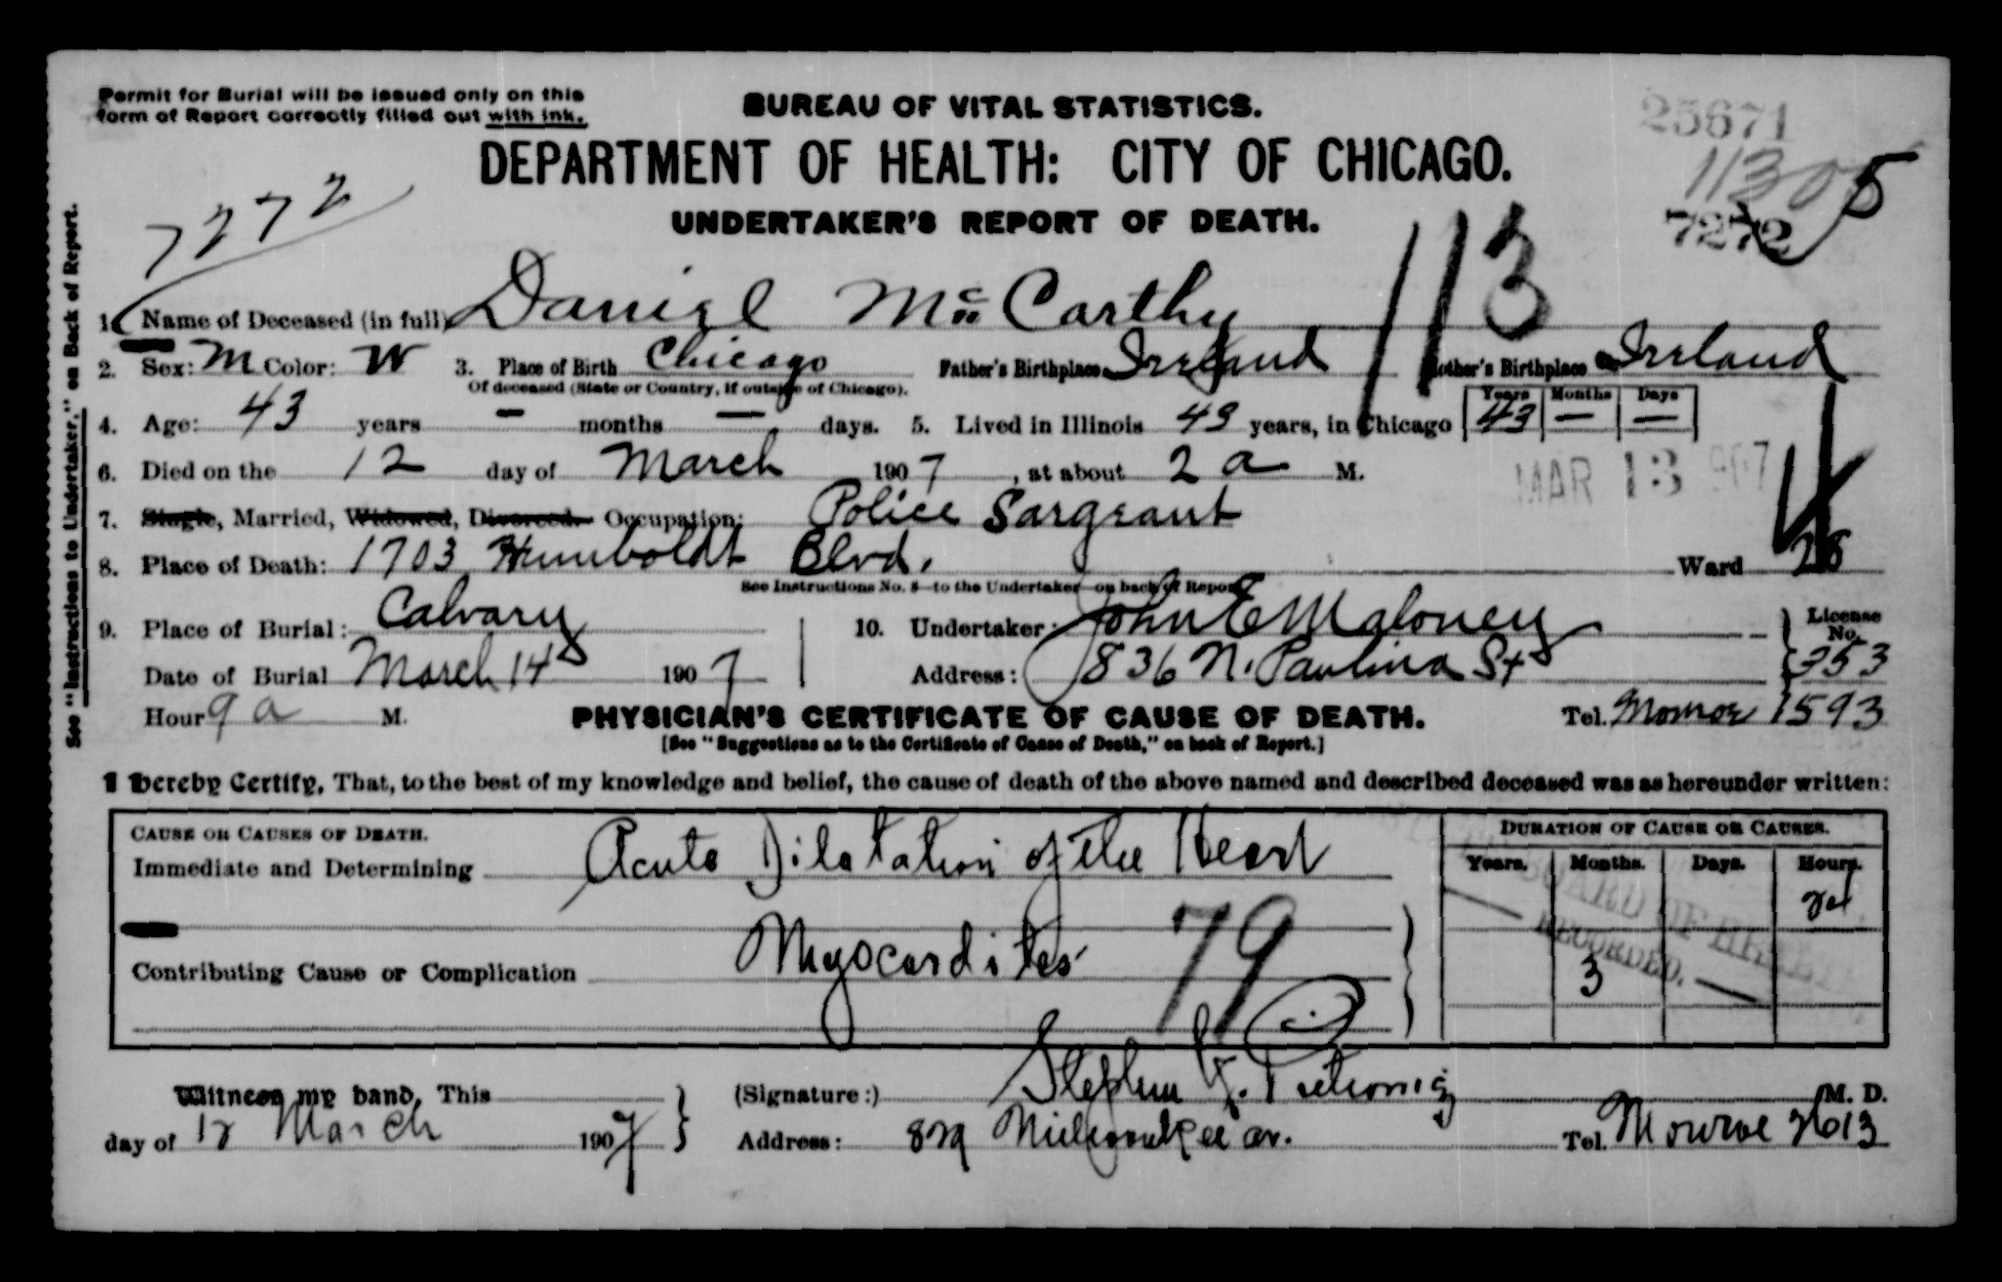 Permit for Burial will be issued only on this
form of Report correctly filled out with ink.
BUREAU OF VITAL STATISTICS.
25671
DEPARTMENT OF HEALTH: CITY OF CHICAGO.
11305
7272
UNDERTAKER'S REPORT OF DEATH.
7272
See "Instructions to Undertaker," on Back of Report.
113
1. Name of Deceased (in full) Daniel McCarthy
2. Sex: M Color: W 3. Place of Birth Chicago Father's Birthplace Ireland Mother's Birthplace Ireland
Of deceased (State or Country, if outside of Chicago).
Years Months Days
4. Age: 43 years – months – days. 5. Lived in Illinois 43 years, in Chicago 43 – –
6. Died on the 12 day of March 1907, at about 2 a M.
MAR 13 907
7. Single, Married, Widowed, Divorced. Occupation: Police Sargeant
8. Place of Death: 1703 Humboldt Blvd. Ward 28
See Instructions No. 8—to the Undertaker—on back of Report
9. Place of Burial: Calvary 10. Undertaker: John E Maloney License No. 353
Date of Burial March 14 1907 Address: 836 N. Paulina St
Hour 9 a M. Tel. Monroe 1593
PHYSICIAN'S CERTIFICATE OF CAUSE OF DEATH.
[See "Suggestions as to the Certificate of Cause of Death," on back of Report.]
I hereby Certify, That, to the best of my knowledge and belief, the cause of death of the above named and described deceased was as hereunder written:
CAUSE OR CAUSES OF DEATH.
DURATION OF CAUSE OR CAUSES.
Years. Months. Days. Hours.
Immediate and Determining Acute Dilatation of the Heart
BOARD OF HEALTH
RECORDED.
79
Contributing Cause or Complication Myocarditis 3
Witness my hand, This
(Signature:) Stephen M. D.
day of 12 March 1907 Address: 829 Milwaukee av. Tel. Monroe 2613